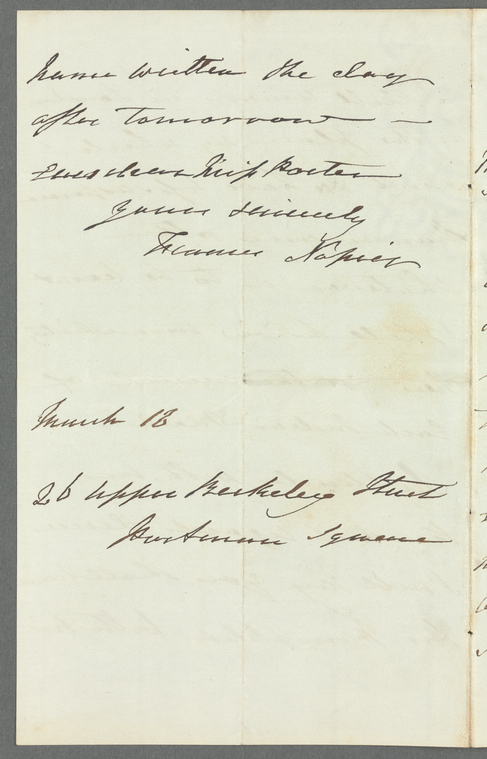 have written the day
after tomorrow —
dear Miss Porter
yours sincerely
Frances Napier
March 18
26 Upper Berkeley Street
Portman Square